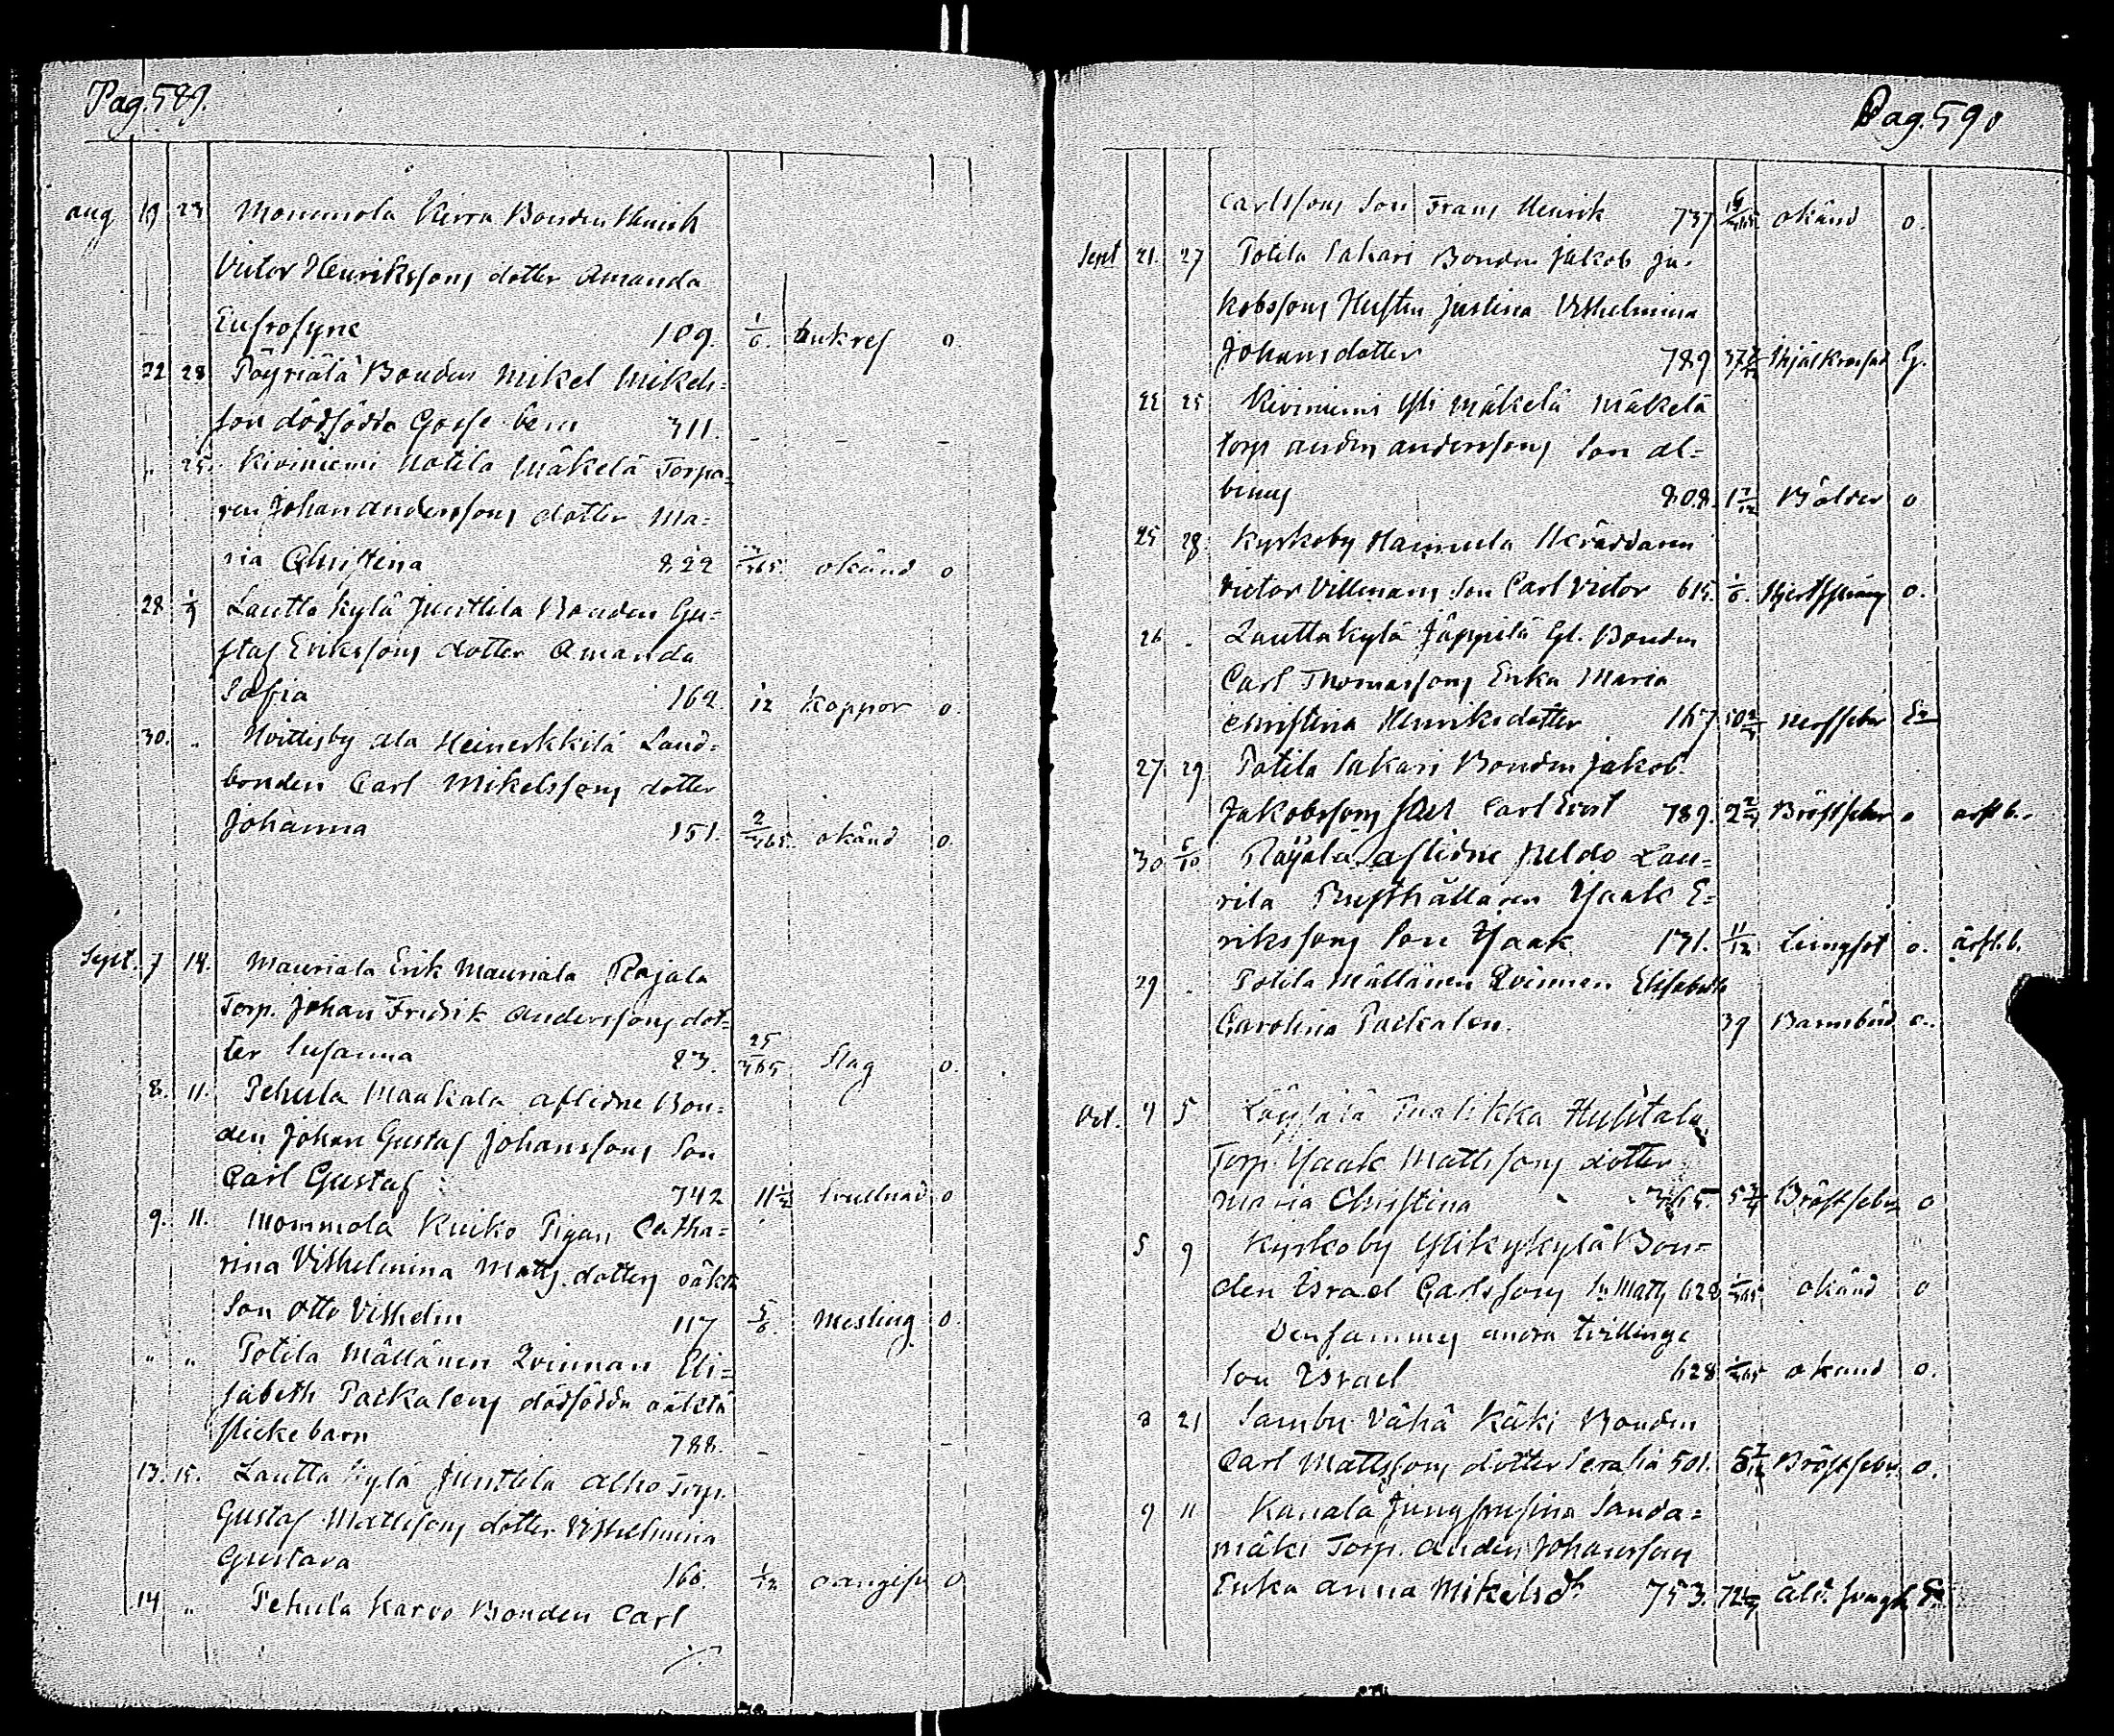 Pag. 589.
aug 19 23 Mommola Kerra Bonden Henrik
Victor Henrikssons dotter Amanda
Eufrosyne 109. 1/6. o.
22 28 Pöyriälä Bonden Mikel Mikels=
son dödfödda Gosse barn 311. - - -
" 25. Kiviniemi Notila Mäkelä Torpa=
ren Johan Anderssons dotter Ma=
ria Christina 822 okänd o
28 1/9 Lauttakylä Junttila Bonden Gu=
staf Erikssons dotter Amanda
Sofia 162. 12 Koppor o.
30. " Hvittisby ala Heinerkkilä Land=
bonden Carl Mikelssons dotter
Johanna 151. 2/365. okänd o.
Sept. 7 14. Mauriala Erik Mauriala Rajala
Torp. Johan Fredrik Anderssons dot=
ter Susanna 83. 25/365 Slag o.
8. 11. Pehula Maakala aflidne Bon=
den Johan Gustaf Johanssons Son
Carl Gustaf 742 11 1/2 Svullnad o
9. 11. Mommola Kuiko Pigan Catha=
rina Vilhelmina Matts. dotters oäkta
Son Otto Vilhelm 117 5/6. Mesling o.
" " Potila Mällänen Qvinnan Eli=
sabeth Packalens dödfödda oäkta
flickebarn 788. - - -
13. 15. Lautta Kylä Junttila Alho Torp.
Gustaf Mattssons dotter Vilhelmina
Gustava 166. 1/12 oangifv o
14 " Pehula Karvo Bonden Carl
./.
Pag. 590
Carlssons Son Frans Henrik 737 okänd o.
Sept 21. 27 Potila Sakari Bonden Jakob Ja=
kobssons Hustru Justina Vilhelmina
Johansdotter 789 G.
22 25 Kiviniemi Yli Mäkelä Mäkelä
torp Anders Anderssons Son Al=
binus 808. 1 7/12 Bölder o
25 28. Kyrkoby Hannula Häraddaren
Victor Villmans Son Carl Victor 615. 1/6. o.
26 - Lauttakylä Jäppilä Gl. Bonden
Carl Thomassons Enka Maria
Christina Henriksdotter 157 Nerffeber En
27. 29 Potila Sakari Bonden Jakob
Jakobssons Son Carl Evert 789. Bröstfeber o
30 5/10. Räyälä aflidne Juldo Lau=
rila Rusthållaren Isaak E=
rikssons Son Isaak 131. 11/12 Lungsot o.
29 - Potila Mällänen Qvinnan Elisabeth
Carolina Packalen. 39 Barnsbörd o..
Oct. 4 5 Huhtala
Torp. Isaak Mattssons dotter
Maria Christina 365. 5 3/4 Bröstfeber o
5 9 Kyrkoby Ylikykylä Bon=
den Israel Carlssons Sn Matts 628 1/365 okänd o
Densammes andra tvillinge
Son Israel 628 1/365 okänd o.
8 21 Sambu Vähä Käki Bonden
Carl Mattssons dotter Serafia 501. Bröstfeber o.
9 11 Kanala Sanda=
mäki Torp. Anders Johansson
Enka Anna Mikelsdr 753. En